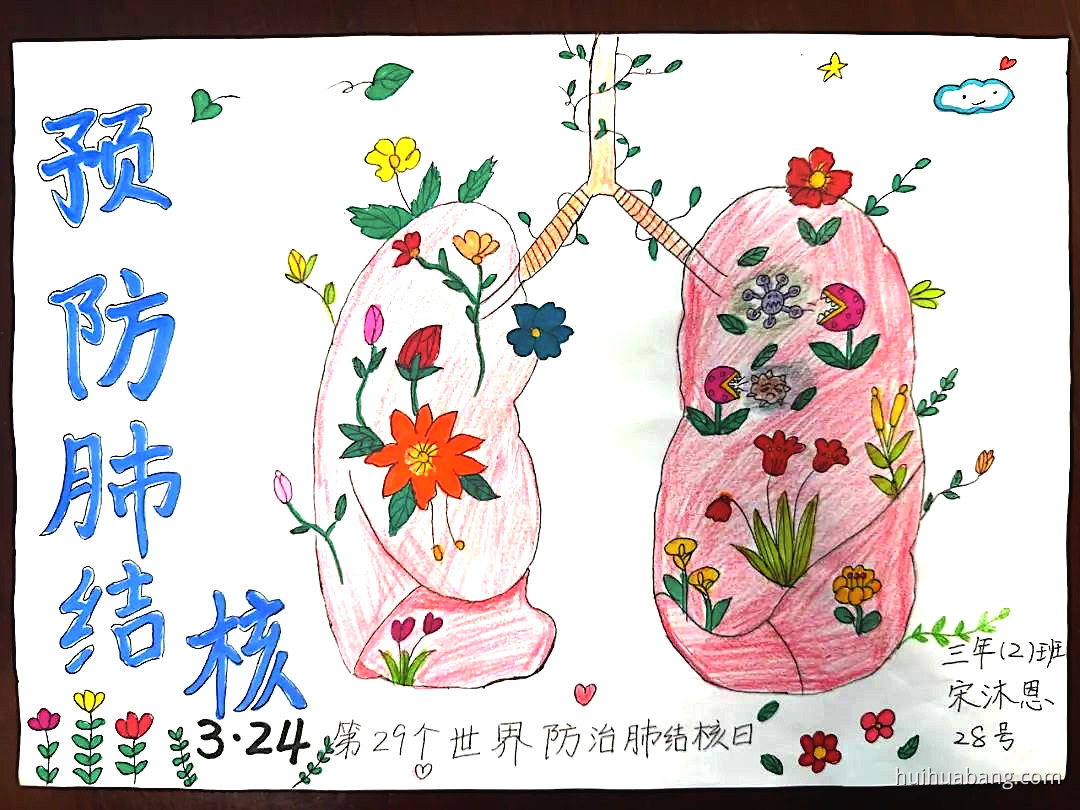 预防肺结核
3·24 第29个世界防治肺结核日
三年(2)班
宋沐恩
28号
huihuabang.com